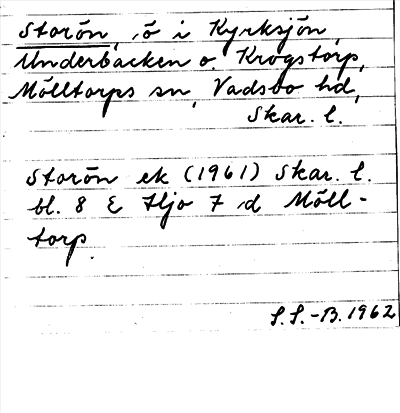 Storön, ö i Kyrksjön,
Underbacken o. Krogstorp,
Mölltorps sn, Vadsbo hd,
Skar. l.
Storön ek (1961) Skar. l.
bl. 8 E Hjo 7 d Möll-
torp.
S.S.-B. 1962